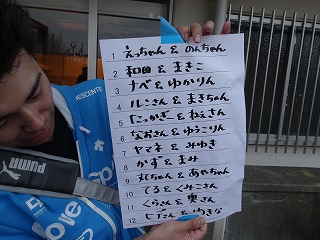 1 えっちゃん & のんちゃん
2 和田 & まきこ
3 ナベ & ゆかりん
4 ルミさん & まきちゃん
5 にっかぎ & ねぇさん
6 なおさん & ゆうこりん
7 ヤマネ & みゆき
8 かず & まみ
9 丸ちゃん & あやちゃん
10 てる & くみこさん
11 くらさん & 奥さん
12 &
DESCENTE
PUMA